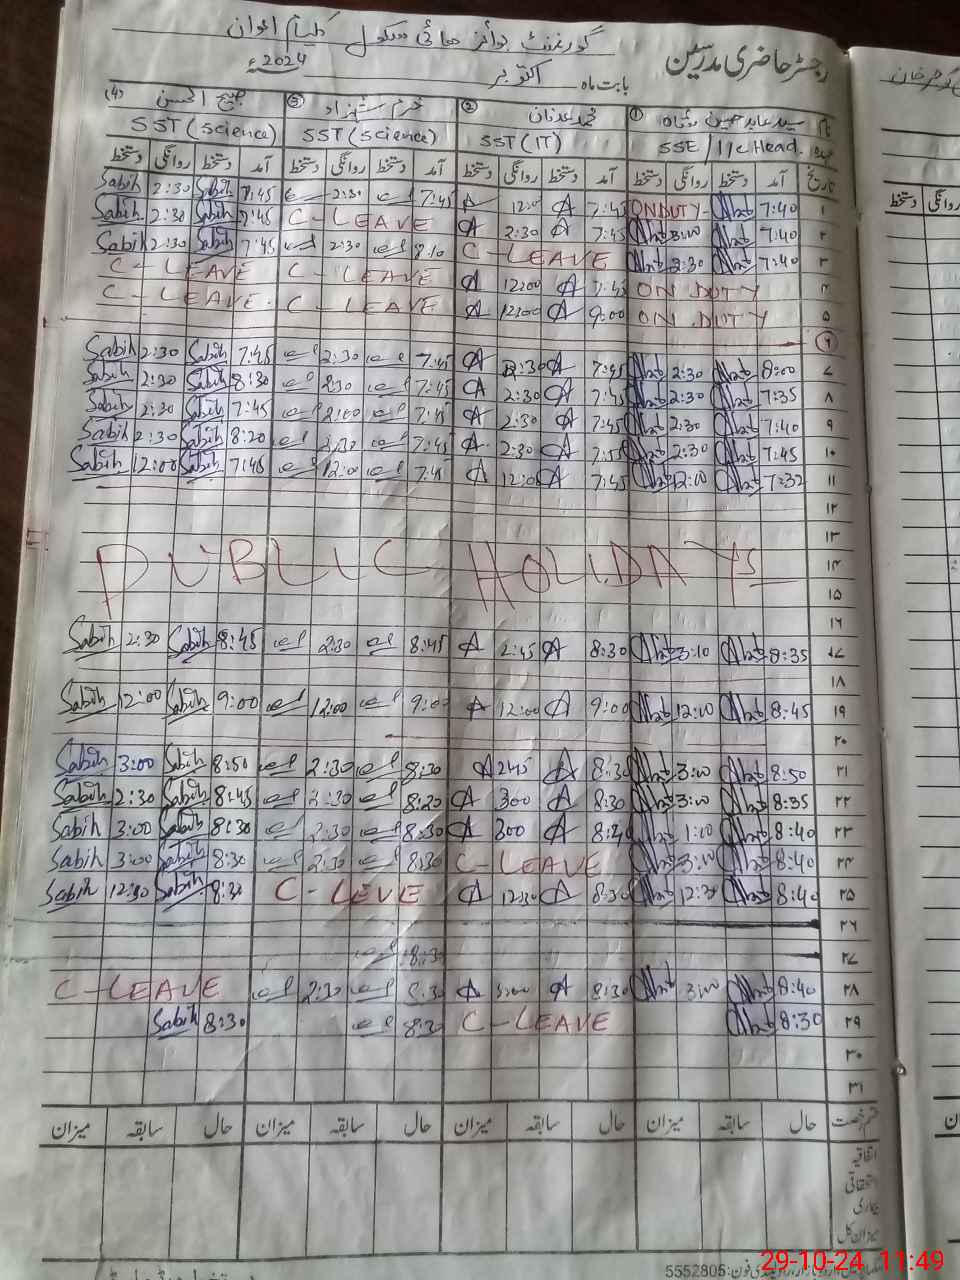 رجسٹر حاضری مدرسین گورنمنٹ بوائز ہائی سکول کلیام اعوان
بابت ماہ اکتوبر 2024ء
① سید عابد حسین شاہ ② محمد عدنان ③ خرم شہزاد (4) صبیح الحسن
عہدہ SSE / I/c Head. SST (IT) SST (Science) SST (Science)
تاریخ آمد دستخط روانگی دستخط آمد دستخط روانگی دستخط آمد دستخط روانگی دستخط آمد دستخط روانگی دستخط
۱ 7:40 ON DUTY 7:45 7:45 2:30 7:45 Sabih 2:30 Sabih
۲ 7:40 7:45 2:30 C-LEAVE 7:45 Sabih 2:30 Sabih
۳ 7:40 2:30 C-LEAVE 8:10 2:30 7:45 Sabih 2:30 Sabih
۴ ON DUTY 7:45 1200 C-LEAVE C-LEAVE
۵ ON DUTY 9:00 1200 C-LEAVE C-LEAVE
۶
۷ 8:00 2:30 7:45 2:30 7:45 2:30 7:45 Sabih 2:30 Sabih
۸ 7:35 2:30 7:45 2:30 7:45 2:30 8:30 Sabih 2:30 Sabih
۹ 7:40 2:30 7:45 2:30 7:45 7:45 Sabih 2:30 Sabih
۱۰ 7:45 2:30 2:30 7:45 8:20 Sabih 2:30 Sabih
۱۱ 7:32 12:00 7:45 12:00 7:45 12:00 7:45 Sabih 12:00 Sabih
۱۲
۱۳
۱۴ PUBLIC HOLIDAYS
۱۵
۱۶
۱۷ 8:35 3:10 8:30 2:45 8:45 2:30 8:45 Sabih 2:30 Sabih
۱۸
۱۹ 8:45 12:00 9:00 12:00 9:00 12:00 9:00 Sabih 12:00 Sabih
۲۰
۲۱ 8:50 3:00 8:30 245 8:30 2:30 8:50 Sabih 3:00 Sabih
۲۲ 8:35 3:00 8:30 300 8:20 2:30 8:45 Sabih 2:30 Sabih
۲۳ 8:40 1:00 8:20 300 8:30 2:30 8:30 Sabih 3:00 Sabih
۲۴ 8:40 3:00 C-LEAVE 8:30 2:30 8:30 Sabih 3:00 Sabih
۲۵ 8:40 12:30 8:30 12:30 C-LEVE 8:30 Sabih 12:30 Sabih
۲۶
۲۷ 8:30
۲۸ 8:40 3:00 8:30 3:00 8:30 2:30 C-LEAVE
۲۹ 8:30 C-LEAVE 8:30 8:30 Sabih
۳۰
۳۱
قسم رخصت حال سابقہ میزان حال سابقہ میزان حال سابقہ میزان حال سابقہ میزان
اتفاقیہ
استحقاقی
بیماری
میزان کل
فون: 5552805
29-10-24 11:49
گوجرخان
روانگی دستخط